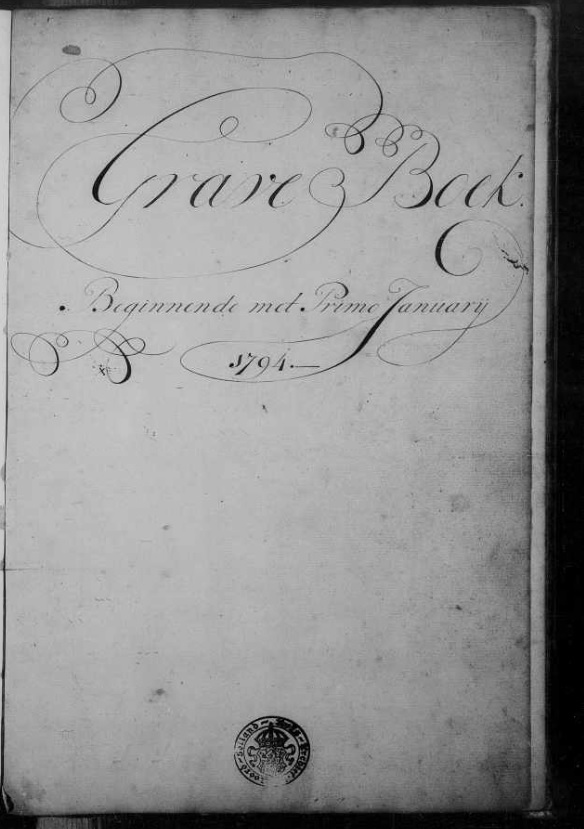 Grave Boek.
Beginnende met Primo January
1794.—